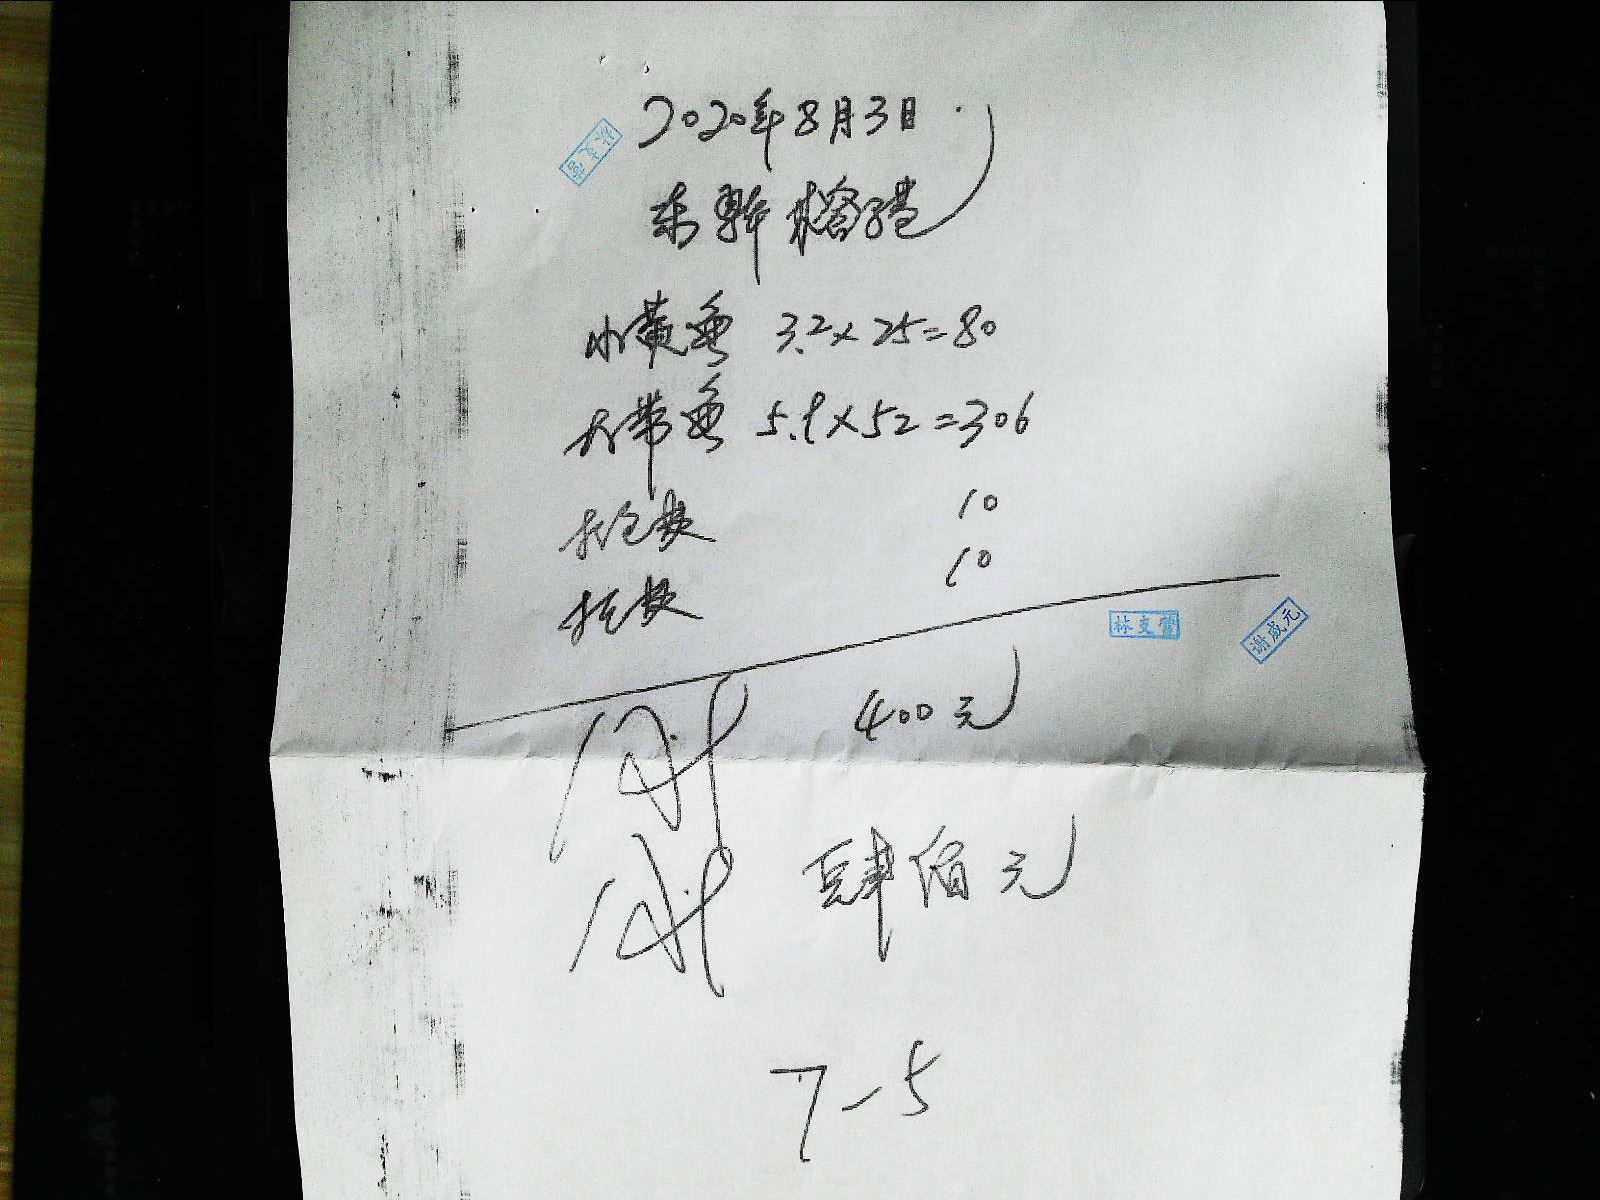 2020年8月3日
林支营
小黄鱼 3.2×25=80
大带鱼 5.9×52=306
10
10
林支营
谢成元
400元
肆佰元
7-5
A4